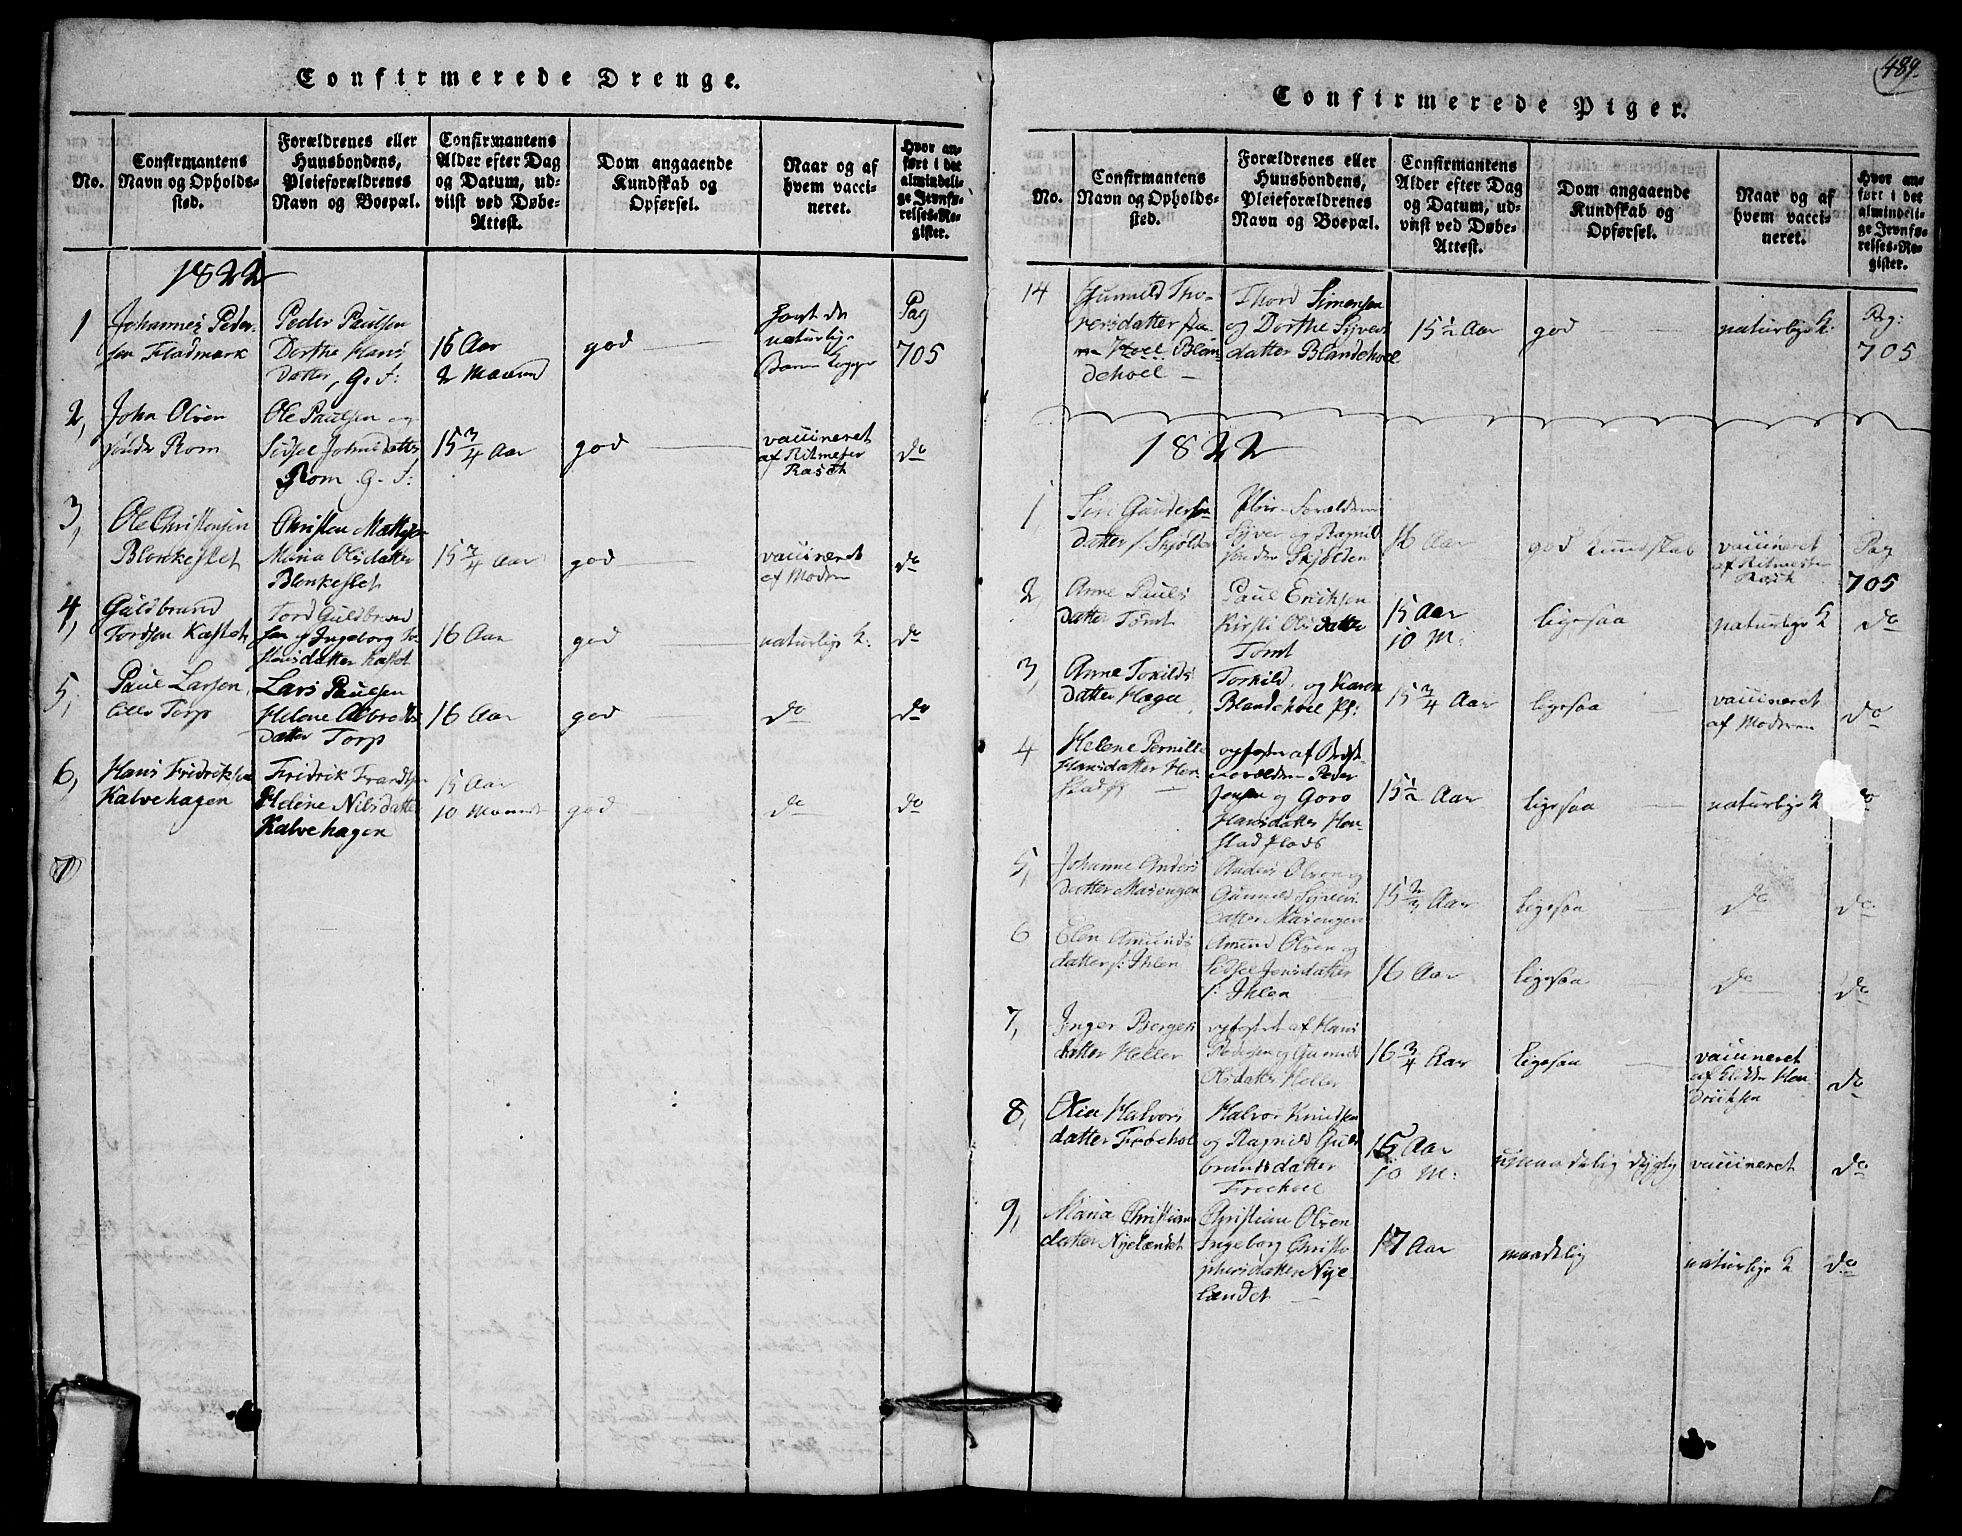 Confirmerede Drenge.
No.
Confirmantens
Navn og Opholds-
sted.
Forældrenes eller
Huusbondens,
Pleieforældrenes
Navn og Boepæl.
Confirmantens
Alder efter Dag
og Datum, ud-
viist ved Døbe-
Attest.
Dom angaaende
Kundskab og
Opførsel.
Naar og af
hvem vacci-
neret.
Hvor an-
ført i det
almindeli-
ge Jevnfø-
relses-Re-
gister.
1822
1
Johannes Peder-
sen Fladmark
Peder Paulsen
Dorthe Hans
Datter, G. F:
16 Aar
2 Maaned
god
havt de
naturlige
Børne Kopper
Pag
705
2,
John Olsen
søndr Rom
Ole Paulsen og
Sidsel Johnsdatter
Rom G. F:
15 3/4 Aar
god
vaccineret
af Ritmester
Rasch
do
3,
Ole Christensen
Blonkeslet
Christen Mattisen
Maria Olsdatter
Blonkeslet
15 3/4 Aar
god
vaccineret
af Modren
do
4,
Guldbrand
Tordsen Kastet
Tord Guldbrand
sen og Ingeborg
datter Kastet
16 Aar
god
naturlige K:
do
5,
Paul Larsen
lille Torp
Lars Paulsen
Helene Albrets
datter Torp
16 Aar
god
do
do
6,
Hans Fridriksen
Kalvehagen
Fridrik Frandsen
Helene Nilsdatter
Kalvehagen
15 Aar
10 Maaned
god
do
do
7
489.
Confirmerede Piger.
No.
Confirmantens
Navn og Opholds-
sted.
Forældrenes eller
Huusbondens,
Pleieforældrenes
Navn og Boepæl.
Confirmantens
Alder efter Dag
og Datum, ud-
viist ved Døbe-
Attest.
Dom angaaende
Kundskab og
Opførsel.
Naar og af
hvem vacci-
neret.
Hvor an-
ført i det
almindeli-
ge Jevnfø-
relses-Re-
gister.
14
Gunnild Tho-
rersdatter
Blan
dehoel
Thord Simensen
og Dorthe Syvers
datter Blandehoel
15 1/2 Aar
god
naturlige K:
Pag:
705
1822
1
Siri Gundersen
datter Skjølden
Pleie-Forældrene
Syver og Ragnild
søndre Skjølden
16 Aar
god Kundskab
vaccineret
af Ritmester
Rasch
Pag
705
2,
Anne Pauls
datter Tomt
Paul Eriksen
Kirsti Olsdatter
Tomt
15 Aar
10 M:
ligesaa
naturlige K
do
3,
Anne Torkilds
datter Haga
Torkild og Karen
Blandehoel Pf:
15 3/4 Aar
ligesaa
vaccineret
af Modren
do
4
Helene Pernille
Hansdatter Hon
stad
opfostr af Bedst
forældrene Peder
Jensen og Goro
Hansdatter Hon-
stad
15 1/2 Aar
ligesaa
naturlige K
do
5,
Johanne Anders
datter Marengen
Anders Olsen og
Gunnild Syvers
datter Marengen
15 2/3 Aar
ligesaa
do
do
6
Elen Amunds
datter s: Ihlen
Amund Olsen og
Sidsel Jensdatter
s: Ihlen
16 Aar
ligesaa
do
do
7,
Inger Bergers
datter Heller
opfostret af Hans
Pedersen og Gunnild
Olsdatter Heller
16 3/4 Aar
ligesaa
vaccineret
af Hen
driksen
do
8,
Halvors
datter Froehoel
Halvor Knudsen
og Ragnild Guld
brandsdatter
Froehoel
15 Aar
10 M:
umaadelig dygtig
vaccineret
do
9,
Maria Christians
datter Nyelændet
Christian Olsen
Ingeborg Christo
phersdatter Nye-
lændet
17 Aar
maadelig
naturlige K
do